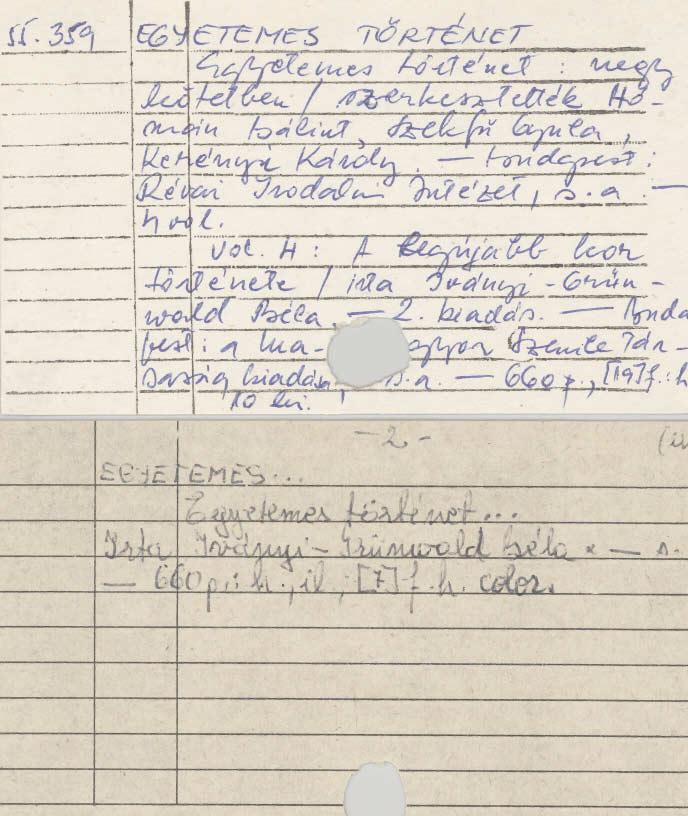 55.359 EGYETEMES TÖRTÉNET
Egyetemes történet : negy
kötetben / szerkesztették Hó-
mán Bálint, Szekfü Gyula,
Kerényi Károly. — Budapest :
Révai Irodalmi Intézet, s.a. —
4 vol.
vol. 4 : A legújabb kor
története / irta Iványi-Grün-
wald Béla. — 2. kiadás. — Buda
pest : a Ma- gyar Szemle Tár-
saság kiadás s.a. — 660 p., [19] f. : h
10 lei.
— 2 -
EGYETEMES...
Egyetemes történet...
Irta Iványi-Grünwald Béla. — s.
— 660 p. : h., il., [7] f. h. color.